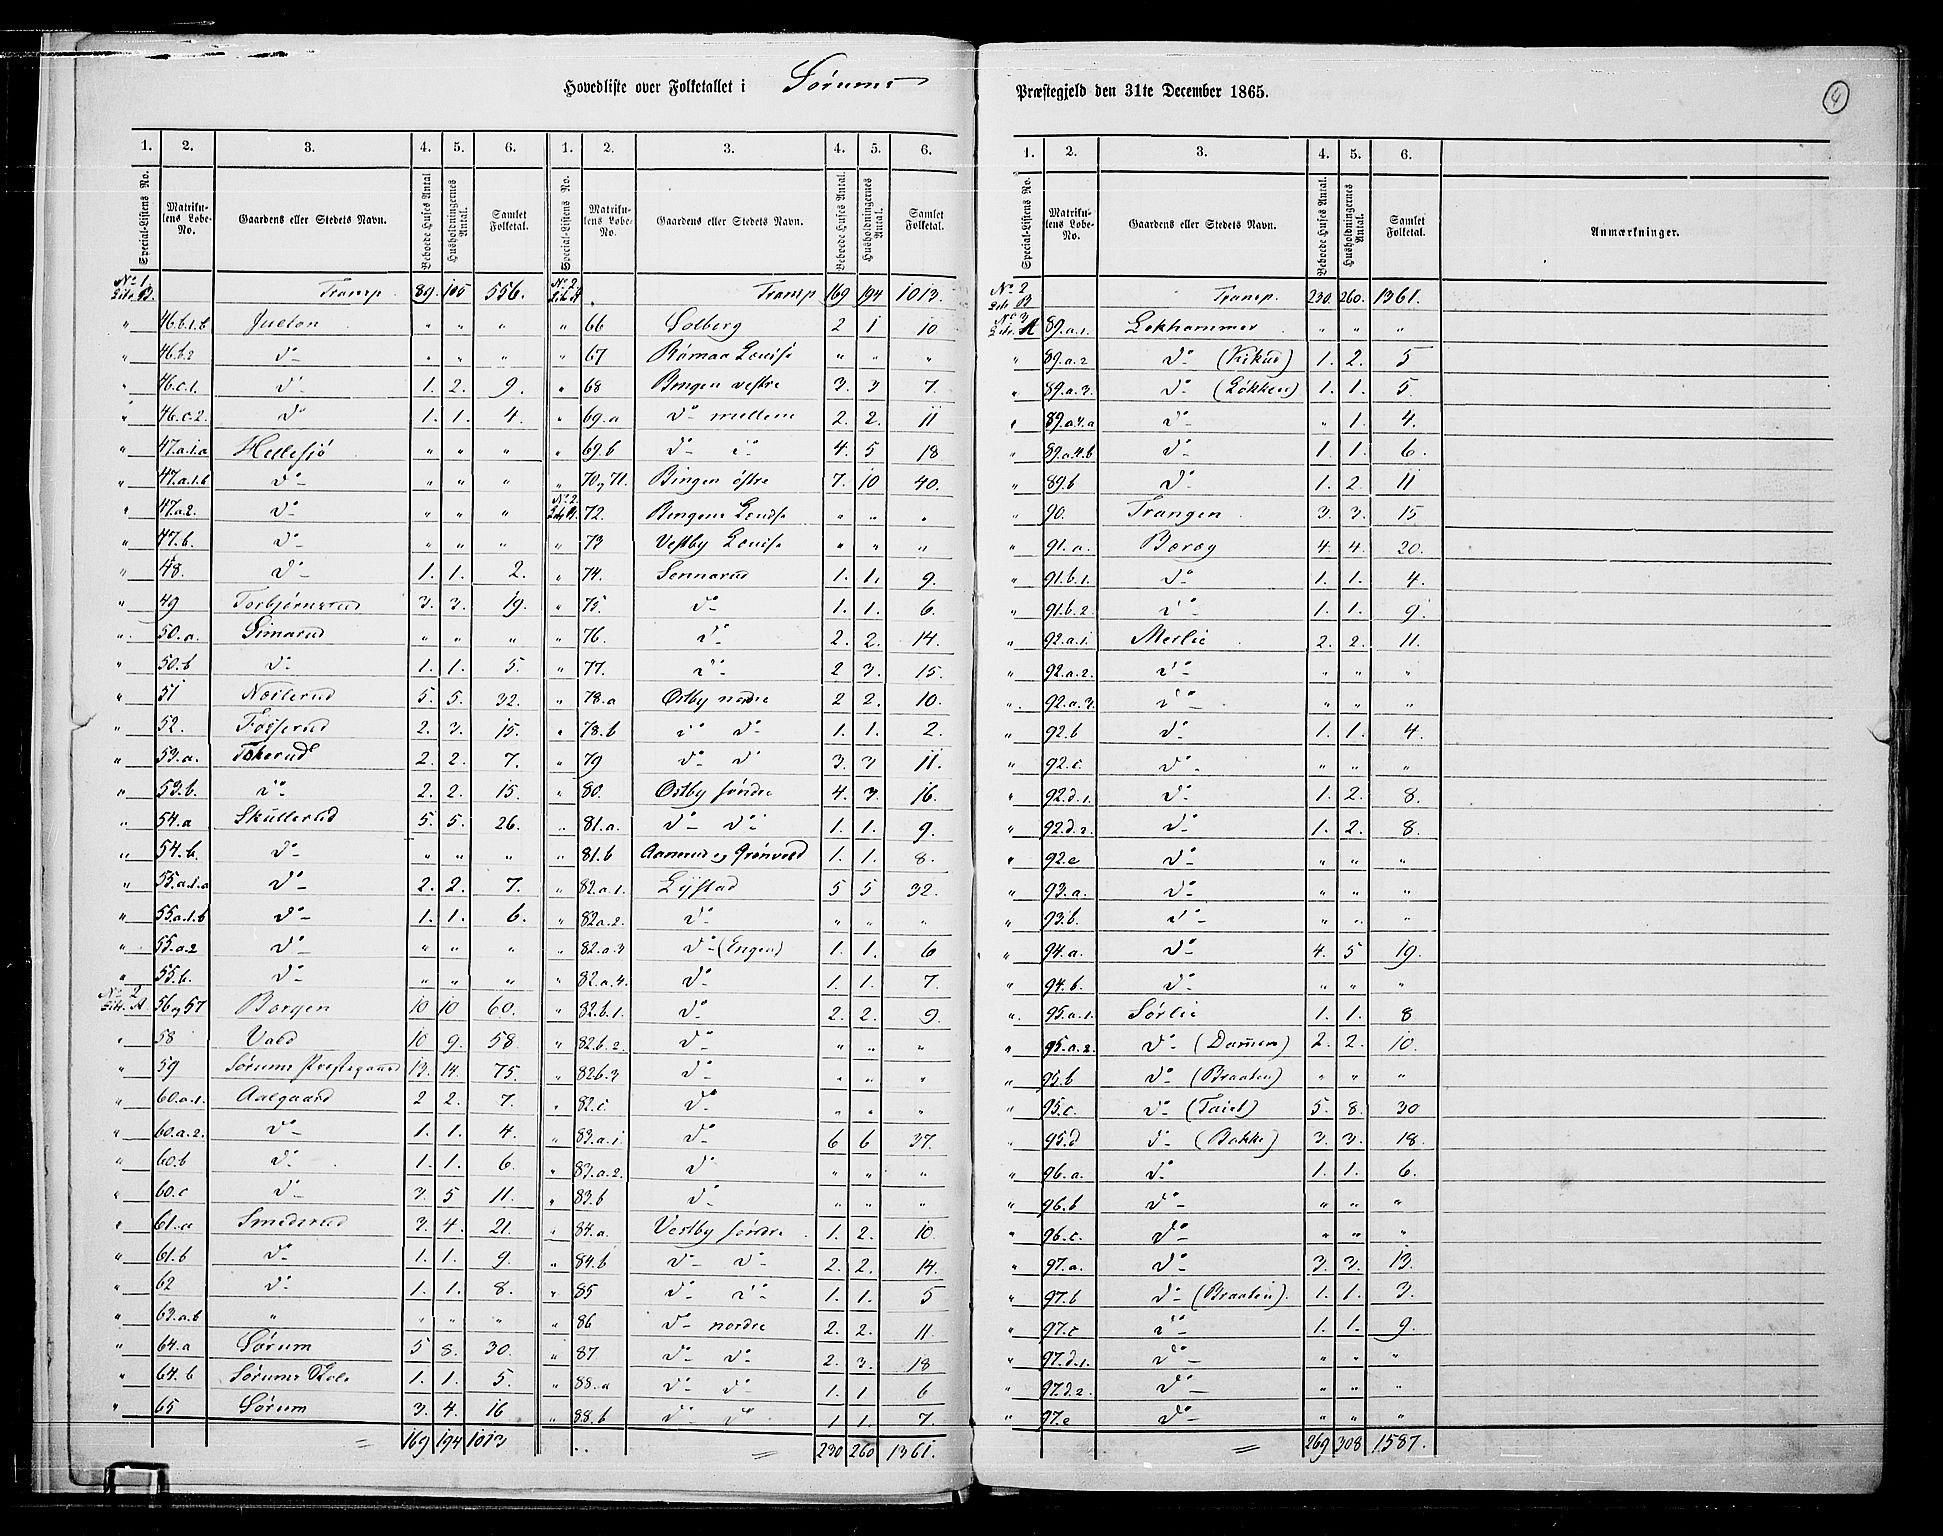 Hovedliste over Folketallet i Sørums Præstegjeld den 31te December 1865.
4
1. 2. 3. 4. 5. 6. 1. 2. 3. 4. 5. 6.
Special-Listens No. Matrikulens Løbe-No. Gaardens eller Stedets Navn. Beboede Huses Antal. Husholdningernes Antal. Samlet Folketal. Special-Listens No. Matrikulens Løbe-No. Gaardens eller Stedets Navn. Beboede Huses Antal. Husholdningernes Antal. Samlet Folketal.
No 1. Transp. 89. 105 556. No 2. Transp 169 194 1013.
" 46.b.1.b " " " " 66 Solberg 2 1 10
" 46.b.2 do " " " " 67 " " "
" 46.c.1. do 1. 2. 9. " 68 Bingen vestre 3. 3 7.
" 46.c.2. do 1. 1. 4. " 69.a do mellem 2. 2. 11
" 47.a.1.a Hellesjø " " " " 69.b do do 4. 5 18
" 47.a.1.b do " " " " 70 og 71. Bingen østre 7. 10 40.
" 47.a.2. do " " " No 2. 72. " " "
" 47.b. do " " " " 73 " " "
" 48. do 1. 1. 2. " 74. Sennerud 1. 1. 9.
" 49 Torbjørnsrud 3. 3. 19. " 75. do 1. 1. 6.
" 50.a. Simarud " " " " 76. do 2. 2. 14.
" 50.b do 1. 1. 5. " 77. do 2 3. 15.
" 51 5. 5. 32. " 78.a Østby nordre 2 2. 10.
" 52. Fosserud 2. 3. 15. " 78.b do do 1. 1. 2.
" 53.a. Tokerud 2. 2. 7. " 79 do do 3. 3 11.
" 53.b. do 2. 2. 15. " 80. Østby søndre 4. 3. 16.
" 54.a Skullerud 5. 5. 26. " 81.a. do do 1. 1. 9.
" 54.b. do " " " " 81.b Aamrud og Grønvold 1. 1. 8.
" 55.a.1.a do 2. 2. 7. " 82.a.1. Lystad 5 5 32.
" 55.a.1.b do 1. 1. 6. " 82.a.2. do " " "
" 55.a.2 do " " " " 82.a.3 do (Engen) 1. 1. 6
" 55.b. do " " " " 82.a.4. do 1. 1. 7.
No 2 Litr. A 56 og 57 Borgen 10 10 60. " 82.b.1. do 2. 2. 9.
" 58 Vald 10 9. 58 " 82.b.2 do " " "
" 59 Sørums Prestegaard 13. 14. 75. " 82.b.3 do " " "
" 60.a.1. Aalgaard 2 2. 7. " 82.c do " " "
" 60.a.2. do 1. 1. 4. " 83.a.1. do 6 6 37.
" 60.b do 1. 1. 6. " 83.a.2. do " " "
" 60.c do 3. 5 11. " 83.b do " " "
" 61.a Smederud 3. 4. 21. " 84.a. Vestby søndre 1. 2. 10.
" 61.b do 1. 1. 9. " 84.b do do 2. 2. 14.
" 62 do 1. 1. 8. " 85 do do 1. 1. 5
" 63.a.b " " " " " 86 do nordre 2. 2. 11.
" 64.a Sørum 5 8. 30. " 87 do do 2. 3. 18
" 64.b Sørums Skole 1. 1. 5. " 88.a do do 1. 1 6
" 65 Sørum 3. 4. 16 " 88.b do do 1. 1. 7.
= 169 194 1013 = 230 260 1361.
1. 2. 3. 4. 5. 6.
Special-Listens No. Matrikulens Løbe-No. Gaardens eller Stedets Navn. Beboede Huses Antal. Husholdningernes Antal. Samlet Folketal. Anmærkninger.
No 2 Litr. B Transp. 230. 260. 1361.
No 3 Litr. A 89.a.1. Lekhammer " " "
" 89.a.2 do 1. 2. 5
" 89.a.3. do (Løkken) 1. 1. 5.
" 89.a.4.a do " 1. 4.
" 89.a.4.b do 1. 1. 6.
" 89.b do 1. 2. 11
" 90. Trangen 3. 3. 15
" 91.a. 4. 4. 20.
" 91.b.1. do 1. 1. 4.
" 91.b.2. do 1. 1. 9.
" 92.a.1. Merlie 2. 2. 11.
" 92.a.2. do " " "
" 92.a.3. do " " "
" 92.b do 1. 1. 4
" 92.c. do " " "
" 92.d.1. do 1. 2. 8.
" 92.d.2. do 1. 2. 8.
" 92.e do " " "
" 93.a. do " " "
" 93.b. do " " "
" 94.a. do 4. 5 19.
" 94.b. do " " "
" 95.a.1. Sørlie 1. 1. 8
" 95.a.2. do 2. 2. 10.
" 95.b do (Braaten) " " "
" 95.c. do 5. 8. 30
" 95.d do (Bakke) 3. 3. 18.
" 96.a. do 1. 1. 6.
" 96.b do " " "
" 96.c. do " " "
" 97.a. do 3. 3. 13.
" 97.b do (Braaten). 1. 1. 3.
" 97.c do 1. 1. 9.
" 97.d.1. do " " "
" 97.d.2. do " " "
" 97.e do " " "
= 269 308 1587.